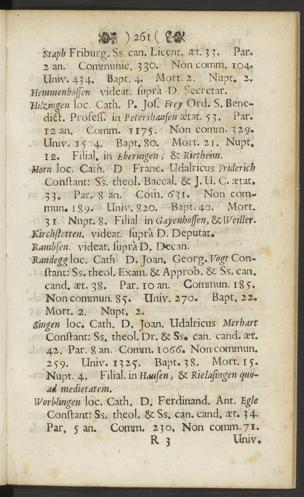 ) 261 (
Staph Friburg. Ss. can. Licent. æt. 33. Par.
2 an. Communic. 330. Non comm. 104.
Univ. 434. Bapt. 4. Mort. 2. Nupt. 2.
Hemmenhoffen videat. suprà D. Secretar.
Hilzingen loc. Cath. P. Jos. Frey Ord. S. Bene-
dict. Profess. in Petershausen ætat. 53. Par.
12 an. Comm. 1175. Non comm. 329.
Univ. 1504. Bapt. 80. Mort. 21. Nupt.
12. Filial. in Eberingen, & Rietheim.
Horn loc. Cath. D Franc. Udalricus Friderich
Constant: Ss. theol. Baccal. & J. U. C. ætat.
33. Par. 8 an. Com. 631. Non com-
mun. 189. Univ. 820. Bapt. 40. Mort.
31 Nupt. 8. Filial in Gayenhoffen, & Weiller.
Kirchstetten. videat. suprà D. Deputat.
Rambsen. videat. suprà D. Decan.
Randegg loc. Cath D. Joan. Georg. Vogt Con-
stant: Ss. theol. Exam. & Approb. & Ss. can.
cand. æt. 38. Par. 10 an. Commun. 185.
Non commun. 85. Univ. 270. Bapt. 22.
Mort. 2. Nupt. 2.
Singen loc. Cath. D. Joan. Udalricus Merhart
Constant: Ss. theol. Dr. & Ss. can. cand. æt.
42. Par. 8 an. Comm. 1066. Non commun.
259. Univ. 1325. Bapt. 38. Mort. 15.
Nupt. 4. Filial. in Hausen, & Rielasingen quo-
ad medietatem.
Worblingen loc. Cath. D. Ferdinand. Ant. Egle
Constant: Ss. theol. & Ss. can. cand. æt. 34.
Par. 5 an. Comm. 230. Non comm. 71.
R 3 Univ.